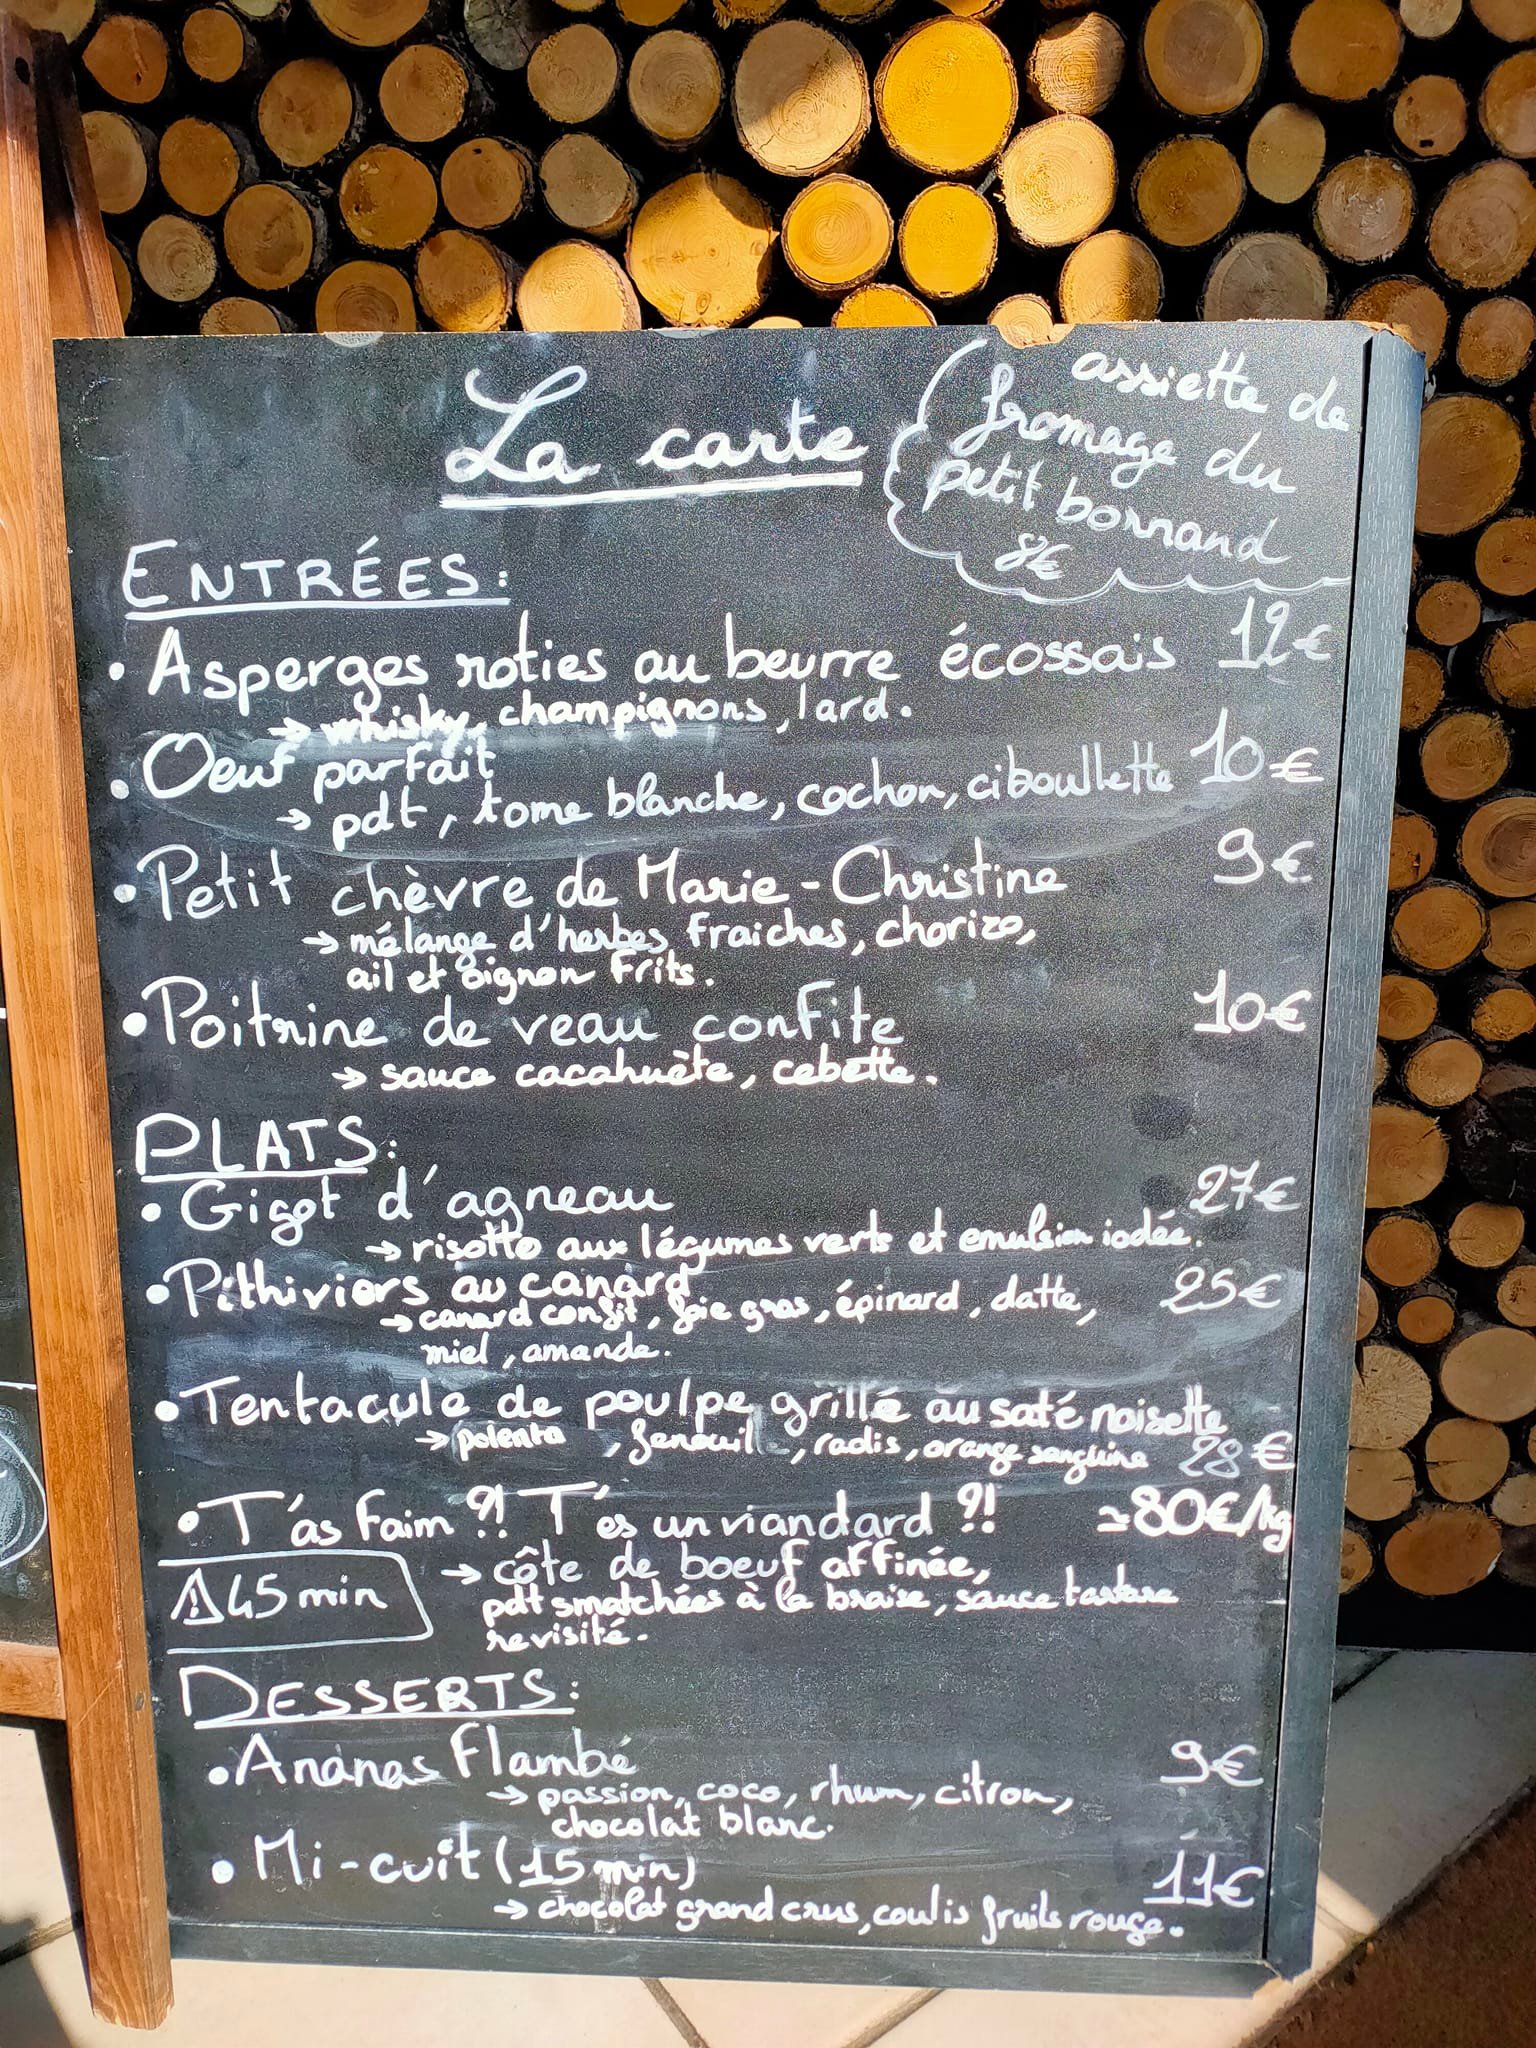 La carte
assiette de
fromage du
petit bornand
8€
ENTRÉES:
• Asperges roties au beurre écossais 12€
→ whisky, champignons, lard.
• Oeuf parfait
→ pdt, tome blanche, cochon, ciboullette 10€
• Petit chèvre de Marie-Christine 9€
→ mélange d'herbes fraiches, chorizo,
ail et oignon frits.
• Poitrine de veau confite 10€
→ sauce cacahuète, cebette.
PLATS:
• Gigot d'agneau 27€
→ risotto aux légumes verts et emulsion iodée.
• Pithiviers au canard 25€
→ canard confit, foie gras, épinard, datte,
miel, amande.
• Tentacule de poulpe grillé au saté noisette
→ polenta, fenouil, radis, orange sanguine 28€
• T'as faim ?! T'es un viandard ?! ≃80€/kg
⚠45 min
→ côte de boeuf affinée,
pdt smatchées à la braise, sauce tartare
revisité.
DESSERTS:
• Ananas flambé 9€
→ passion, coco, rhum, citron,
chocolat blanc.
• Mi-cuit (15 min) 11€
→ chocolat grand crus, coulis fruits rouge.